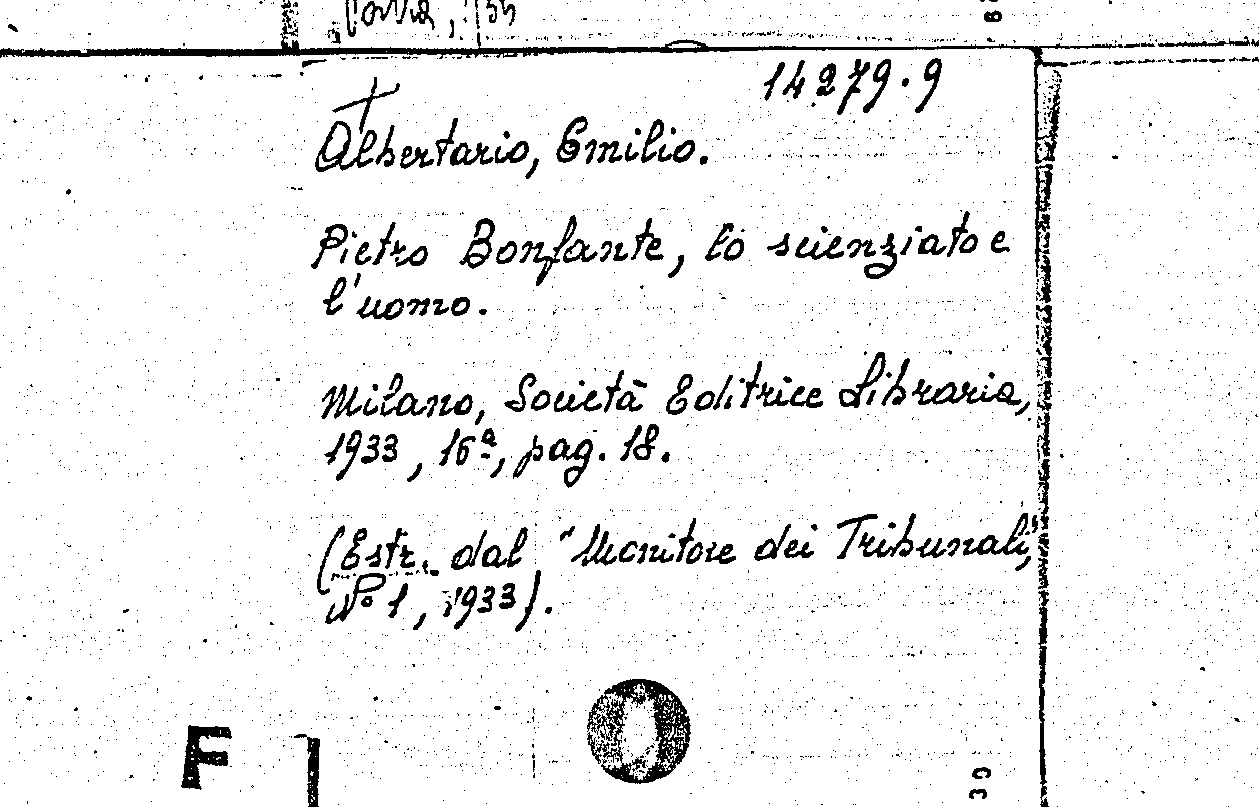 14279.9
Albertario, Emilio.
Pietro Bonfante, lo scienziato e
l'uomo.
Milano, Società Editrice Libraria,
1933, 16ª, pag. 18.
(Estr. dal "Monitore dei Tribunali",
Nº 1, 1933).
F
30